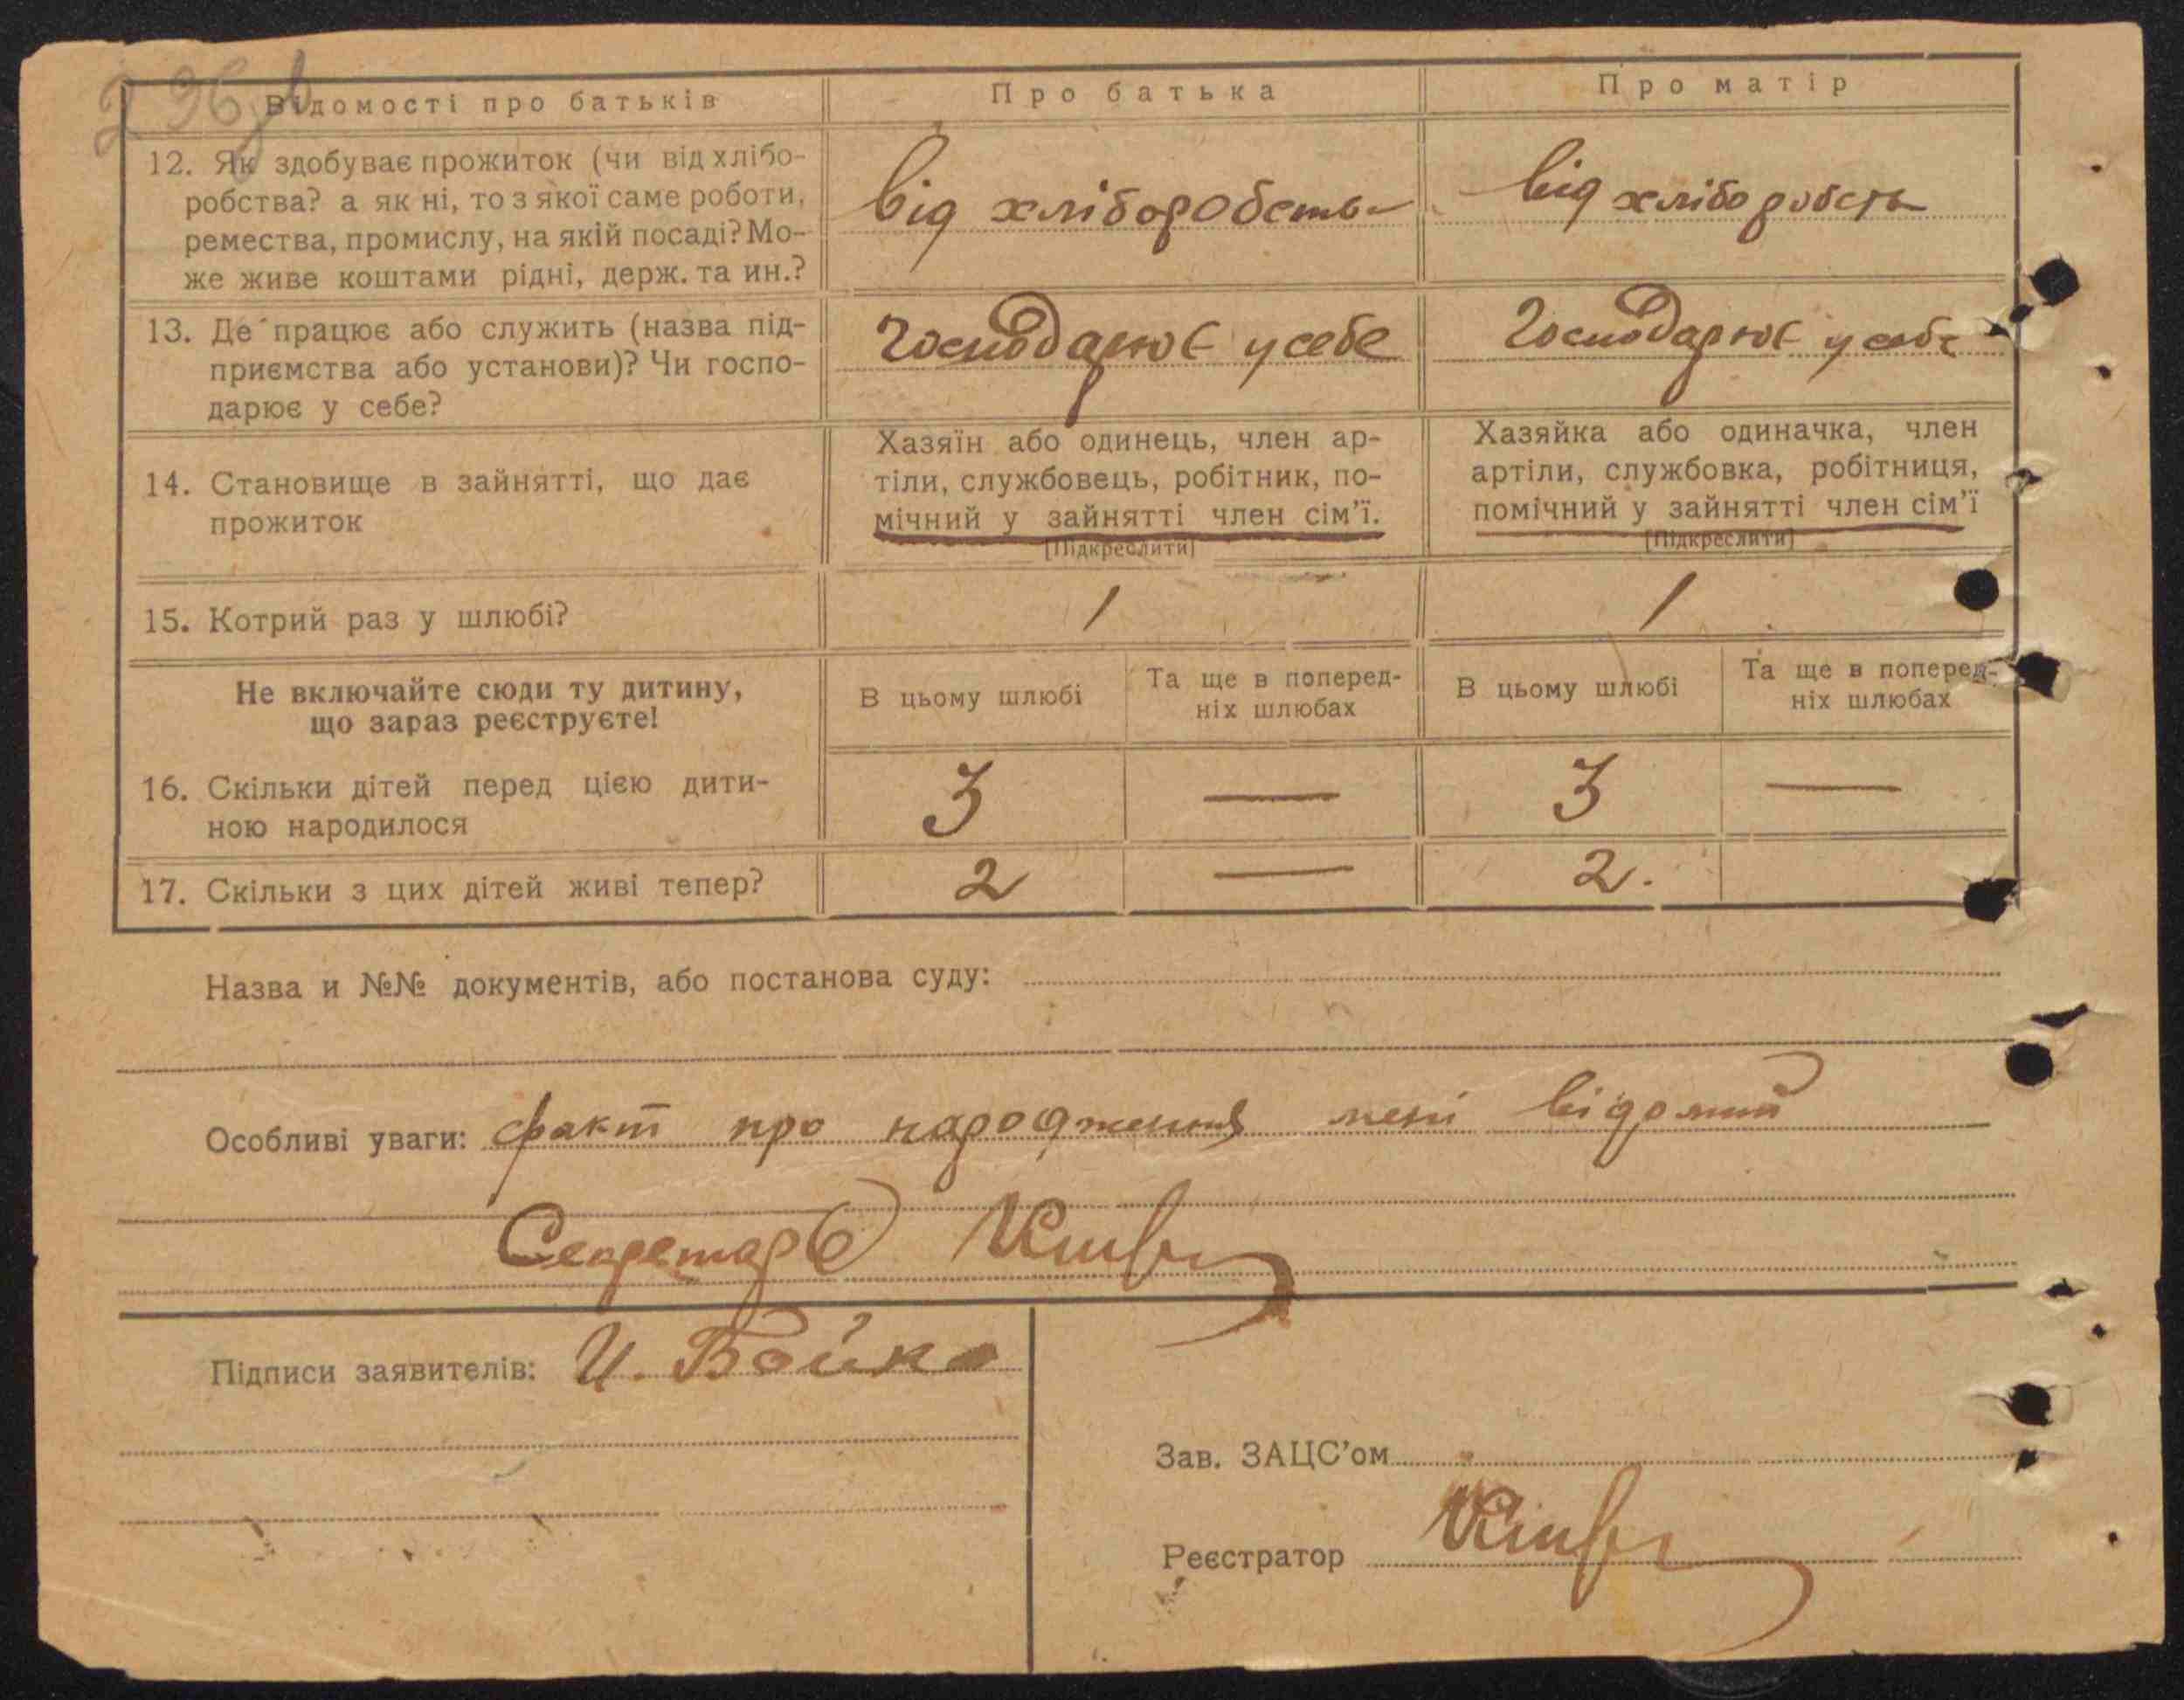 296
Відомості про батьків
Про батька
Про матір
12. Як здобуває прожиток (чи від хлібо-
робства? а як ні, то з якої саме роботи,
ремества, промислу, на якій посаді? Мо-
же живе коштами рідні, держ. та ин.?
від хлібороб
від хлібороб
13. Де працює або служить (назва під-
приємства або установи)? Чи госпо-
дарює у себе?
Господарює у себе
Господарює у себе
14. Становище в зайнятті, що дає
прожиток
Хазяїн або одинець, член ар-
тіли, службовець, робітник, по-
мічний у зайнятті член сім'ї.
[Підкреслити]
Хазяйка або одиначка, член
артіли, службовка, робітниця,
помічний у зайнятті член сім'ї
[Підкреслити]
15. Котрий раз у шлюбі?
1
1
Не включайте сюди ту дитину,
що зараз реєструєте!
В цьому шлюбі
Та ще в поперед-
ніх шлюбах
В цьому шлюбі
Та ще в поперед-
ніх шлюбах
16. Скільки дітей перед цією дити-
ною народилося
3 — 3 —
17. Скільки з цих дітей живі тепер?
2 — 2.
Назва и №№ документів, або постанова суду:
Особливі уваги: факт про народження мені відомий
Секретарь
Підписи заявителів: И. Бойко
Зав. ЗАЦС'ом
Реєстратор